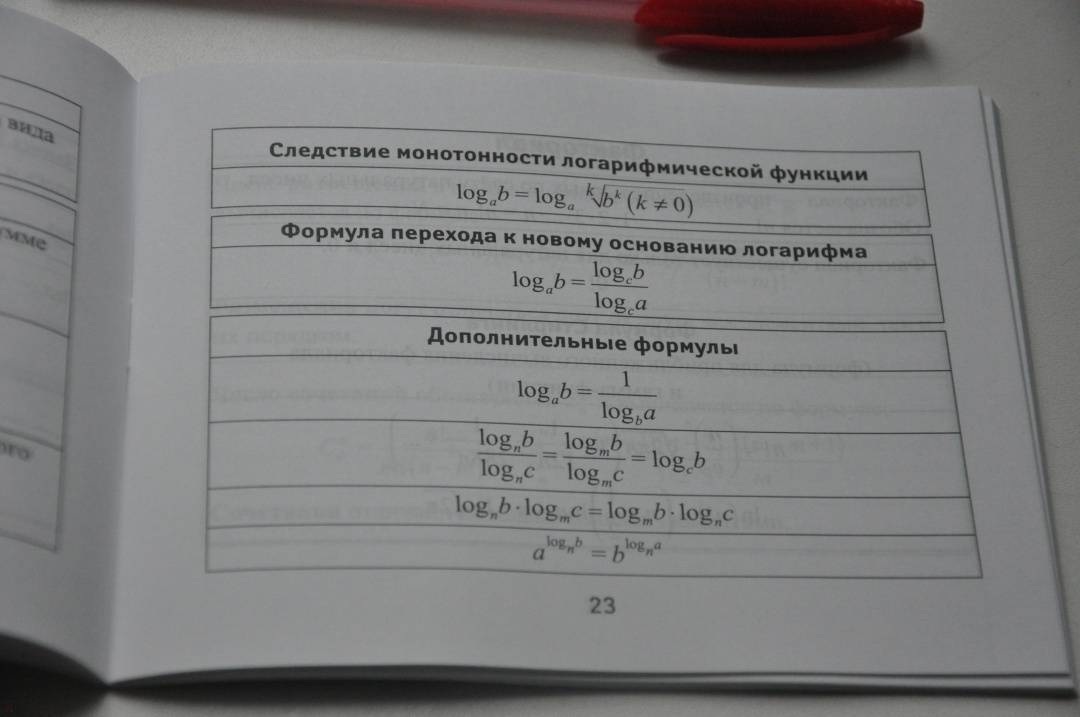 вида
умме
ого
Следствие монотонности логарифмической функции
logₐb = logₐ ᵏ√bᵏ (k ≠ 0)
Формула перехода к новому основанию логарифма
logₐb = log_c b / log_c a
Дополнительные формулы
logₐb = 1 / log_b a
log_n b / log_n c = log_m b / log_m c = log_c b
log_n b · log_m c = log_m b · log_n c
a^(log_n b) = b^(log_n a)
23